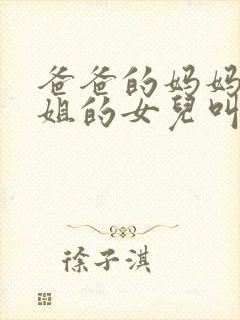 爸爸的妈妈
姐的女兒叫
徐子淇